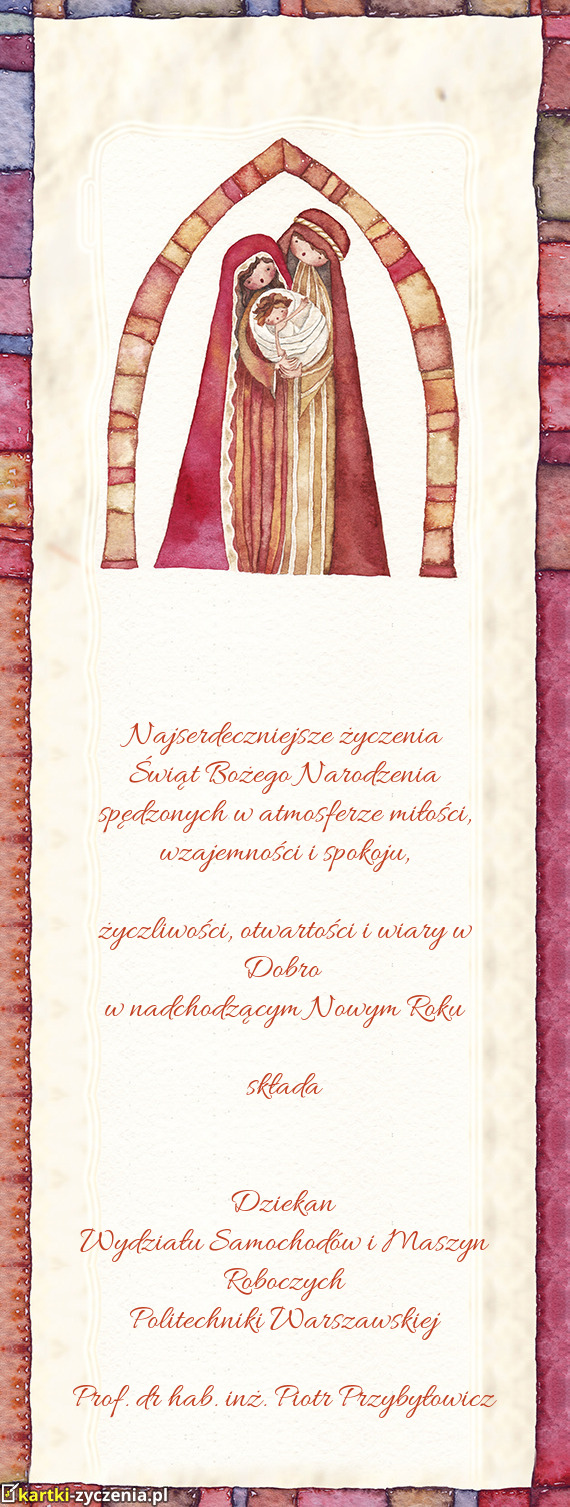 Najserdeczniejsze życzenia
Świąt Bożego Narodzenia
spędzonych w atmosferze miłości,
wzajemności i spokoju,
życzliwości, otwartości i wiary w
Dobro
w nadchodzącym Nowym Roku
składa
Dziekan
Wydziału Samochodów i Maszyn
Roboczych
Politechniki Warszawskiej
Prof. dr hab. inż. Piotr Przybyłowicz
kartki-zyczenia.pl